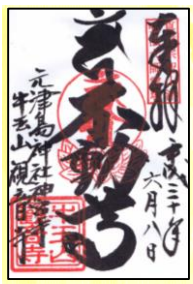 奉拝
平成三十年
六月八日
不動尊
元津島神社神宮寺
牛玉山観音寺